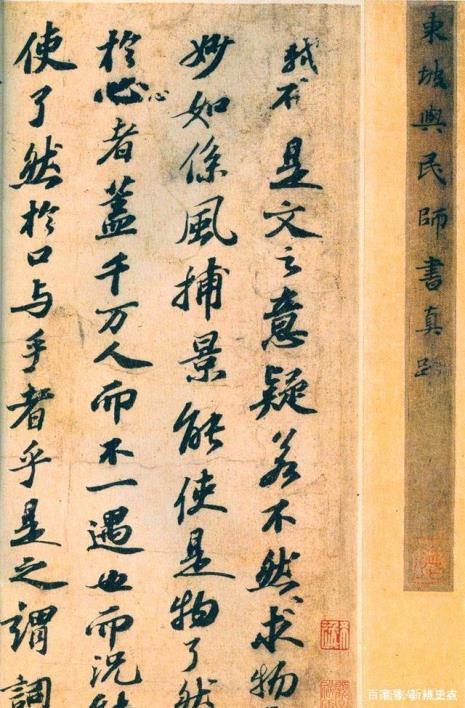 東坡與民師書真
是文之意疑若不然求物
妙如係風捕景能使是物了然
於心者蓋千万人而不一遇也而况
使了然於口与手者乎是之謂詞